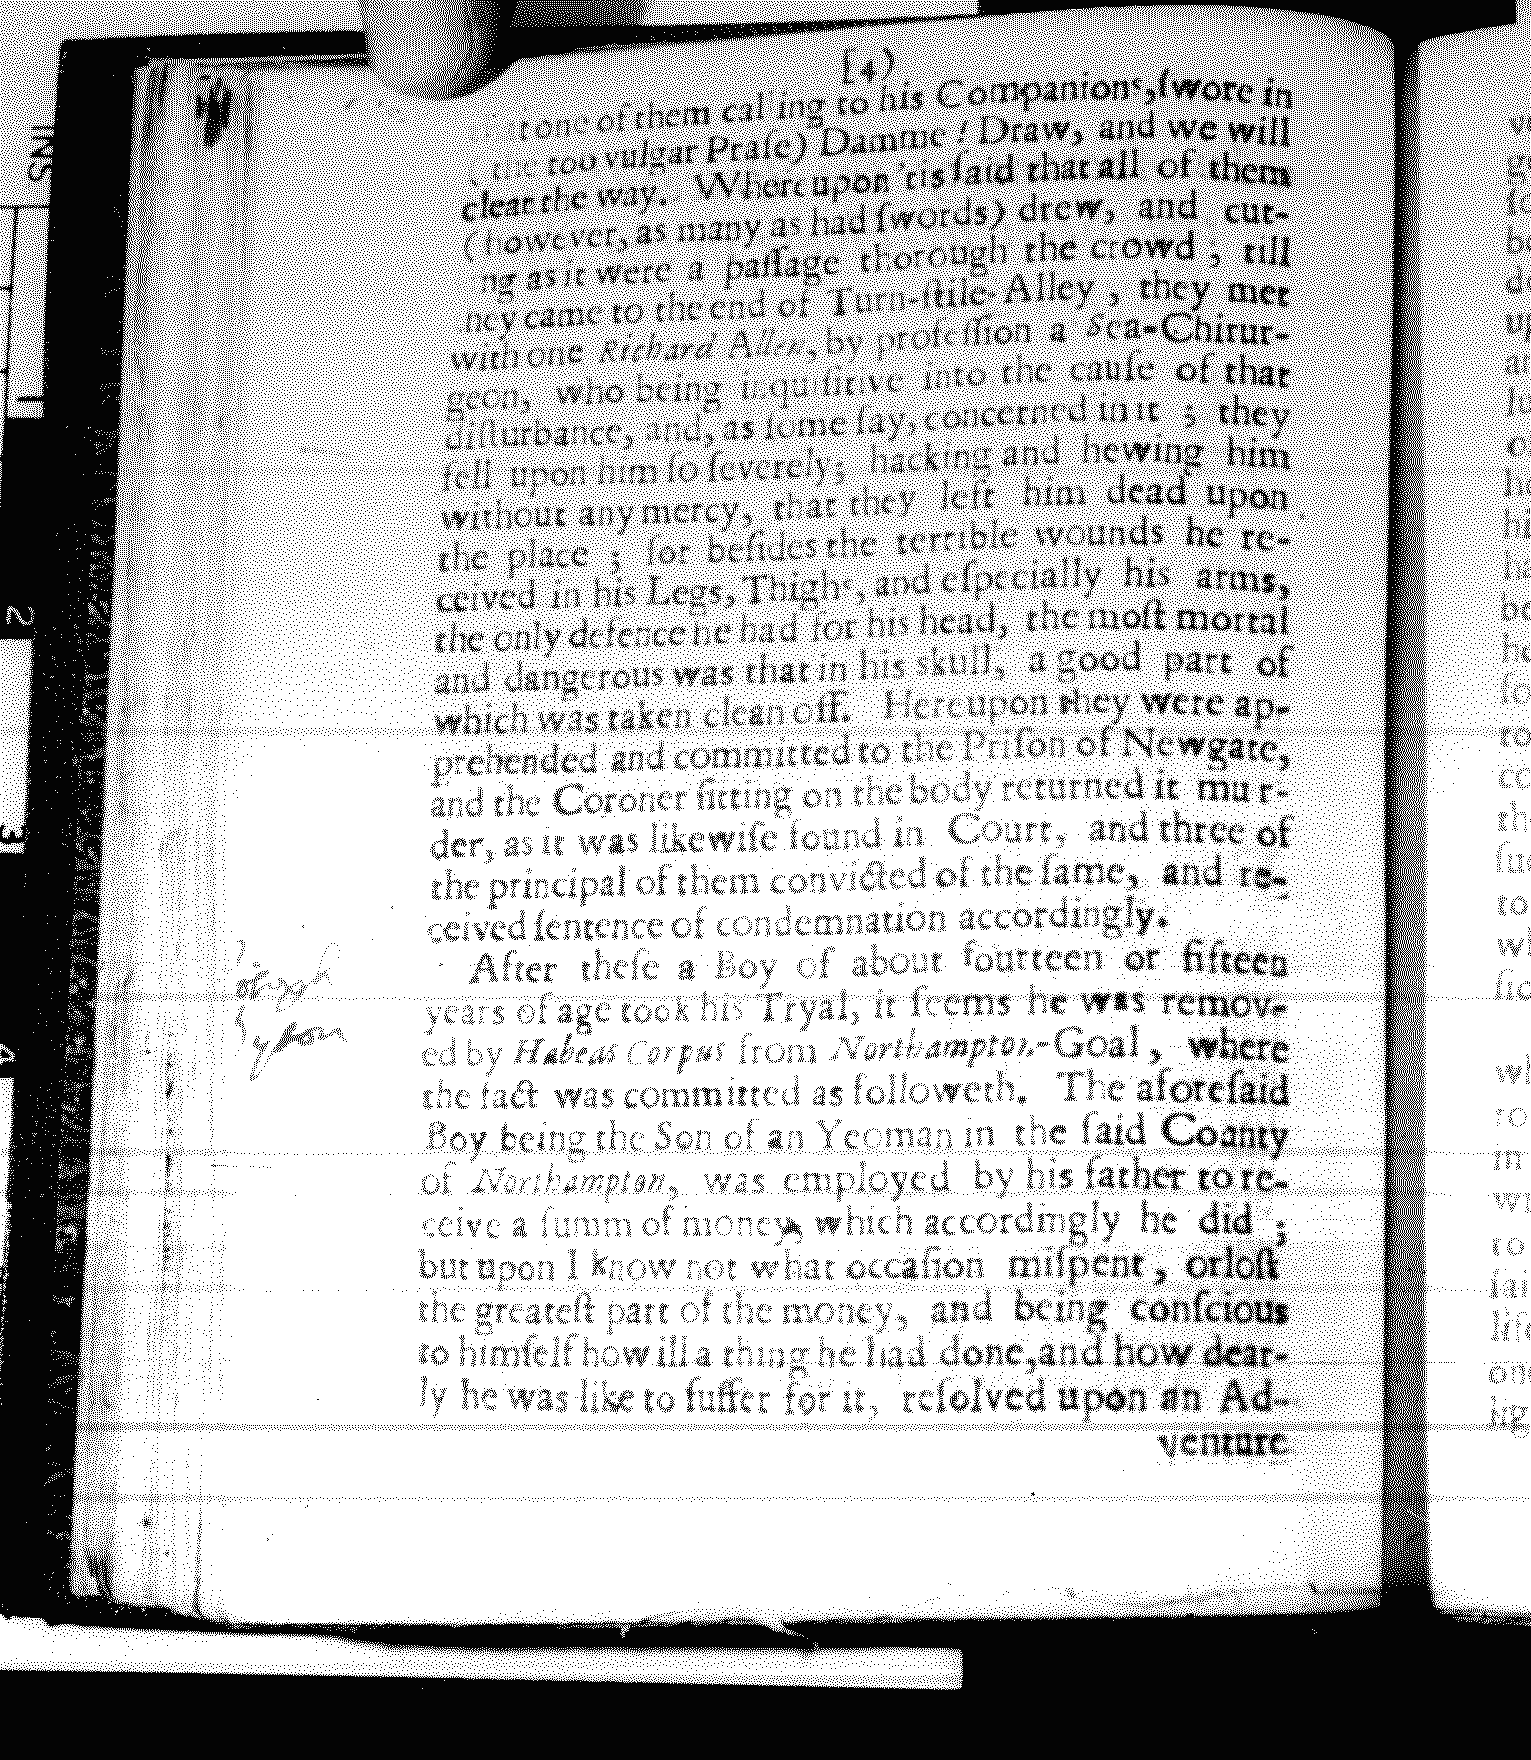 (4)
one of them cal ing to his Companions, (wore in
too vulgar Praſe) Damme! Draw, and we will
clear the way. Whereupon tis ſaid that all of them
(however, as many as had ſwords) drew, and cut-
ng as it were a paſſage thorough the crowd, till
hey came to the end of Turn-ſtile-Alley, they met
with one Richard Allen, by profeſſion a Sea-Chirur-
geon, who being inquiſitive into the cauſe of that
diſturbance, and, as ſome ſay, concerned in it; they
fell upon him ſo ſeverely; hacking and hewing him
without any mercy, that they left him dead upon
the place; for beſides the terrible wounds he re-
ceived in his Legs, Thighs, and eſpecially his arms,
the only defence he had for his head, the moſt mortal
and dangerous was that in his skull, a good part of
which was taken clean off. Hereupon they were ap-
prehended and committed to the Priſon of Newgate,
and the Coroner ſitting on the body returned it mur-
der, as it was likewiſe found in Court, and three of
the principal of them convicted of the ſame, and re-
ceived ſentence of condemnation accordingly.
After theſe a Boy of about fourteen or fifteen
years of age took his Tryal, it ſeems he was remov-
ed by Habeas Corpus from Northampton-Goal, where
the fact was committed as followeth. The aforeſaid
Boy being the Son of an Yeoman in the ſaid Coanty
of Northampton, was employed by his father to re-
ceive a ſumm of money, which accordingly he did;
but upon I know not what occaſion miſpent, or loſt
the greateſt part of the money, and being conſcious
to himſelf how ill a thing he had done, and how dear-
ly he was like to ſuffer for it, reſolved upon an Ad-
venture
INS
1
2
3
4